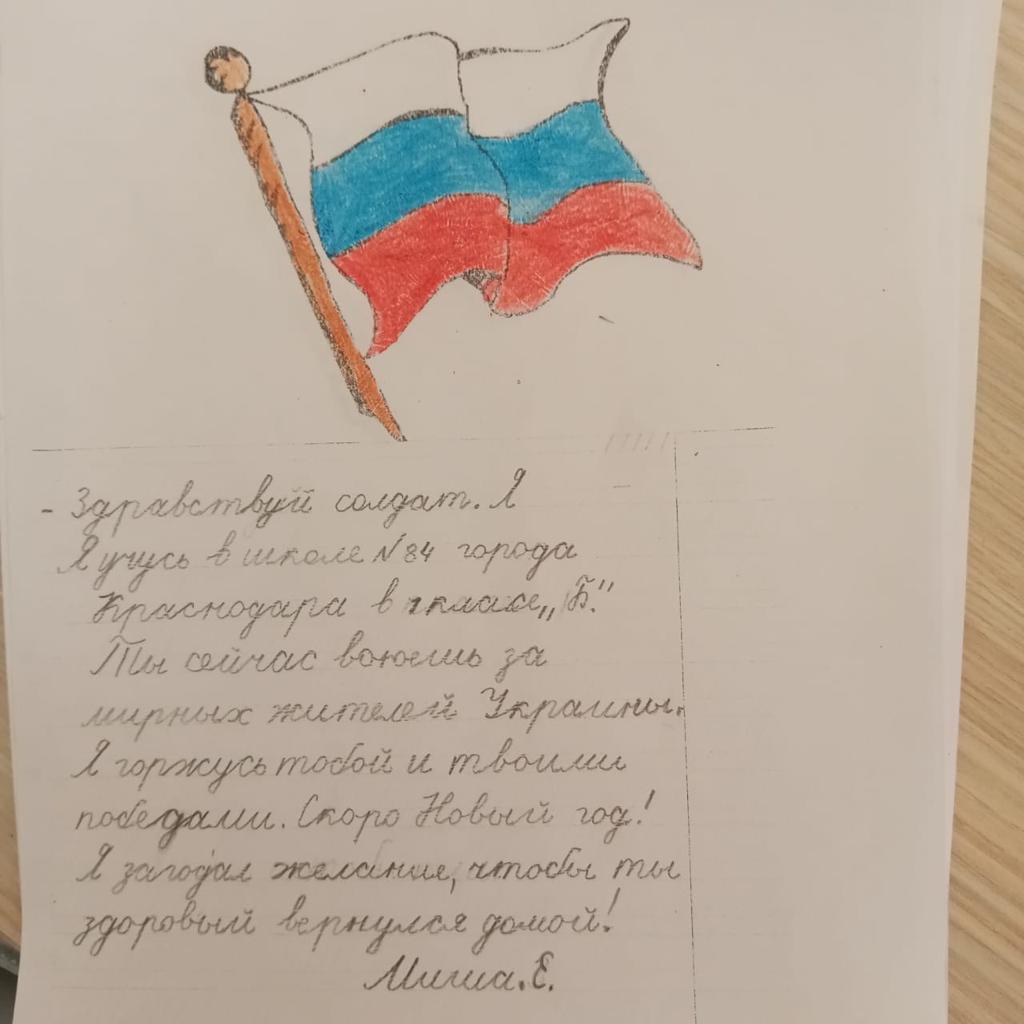 - Здравствуй солдат. Я
Я учусь в школе №84 города
Краснодара в 1 классе „Б.“
Ты сейчас воюешь за
мирных жителей Украины.
Я горжусь тобой и твоими
победами. Скоро Новый год!
Я загодал желание, чтобы ты
здоровый вернулся домой!
Миша.Е.